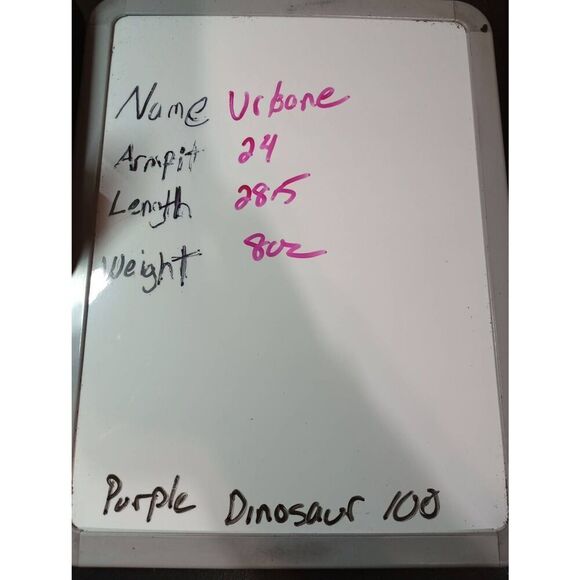 Name Urbane
Armpit 24
Length 28.5
Weight 8oz
Purple Dinosaur 100